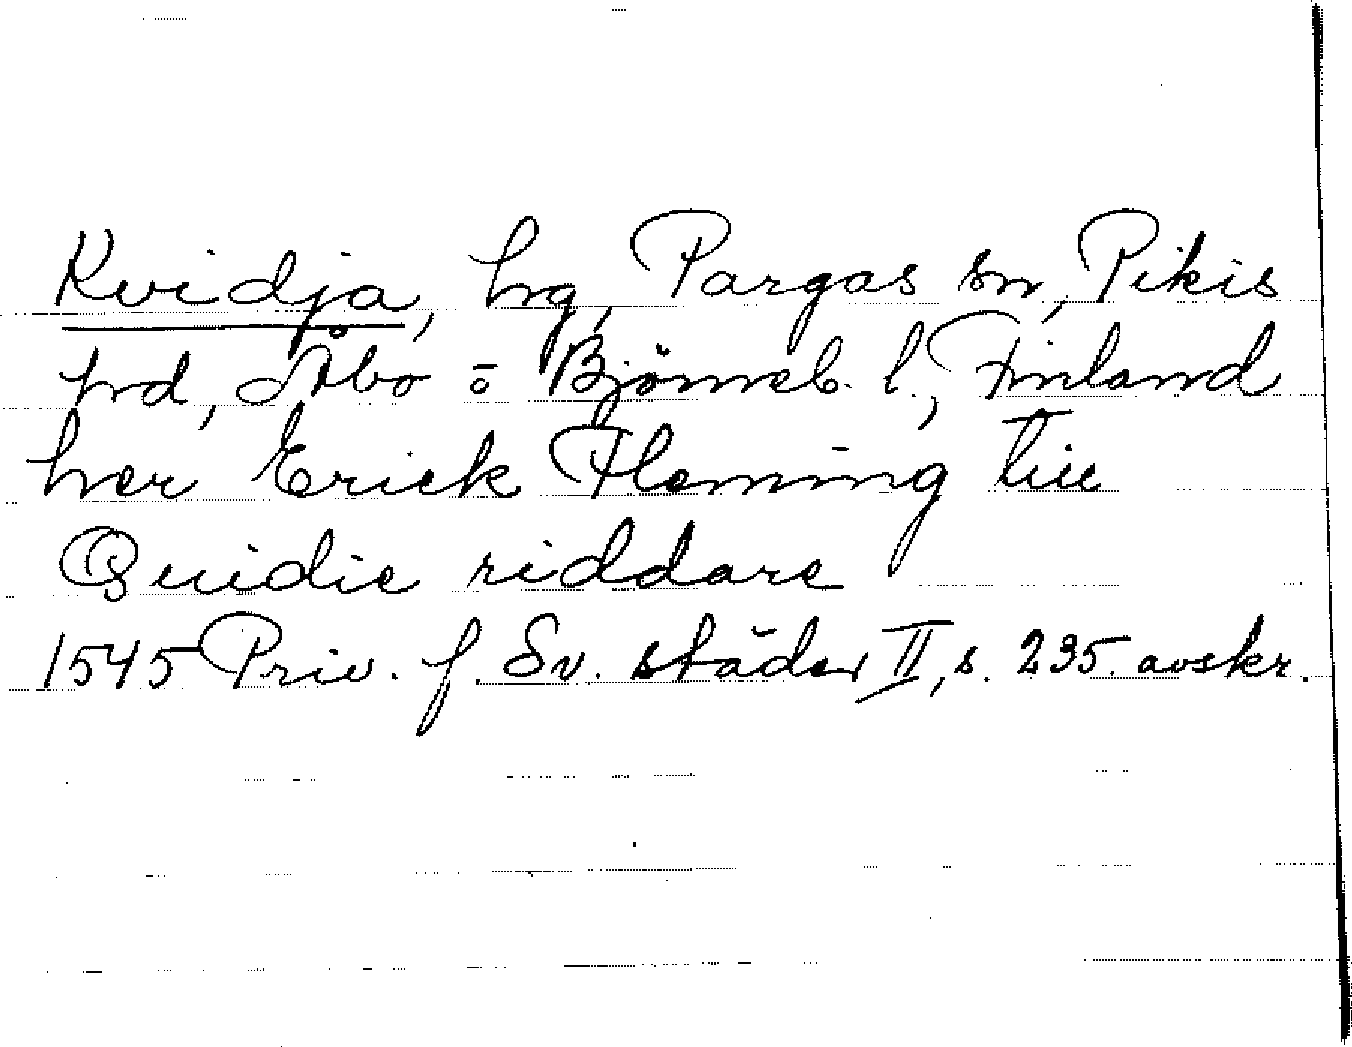 Kvidja, hg, Pargas sn, Pikis
hd, Åbo o Björneb. l., Finland
her Erick Fleming till
Quidie riddare
1545 Priv. f. Sv. städer II, s. 235. avskr.